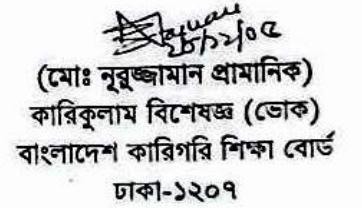 ২৮/১২/০৫
(মোঃ নূরুজ্জামান প্রামানিক)
কারিকুলাম বিশেষজ্ঞ (ভোক)
বাংলাদেশ কারিগরি শিক্ষা বোর্ড
ঢাকা-১২০৭